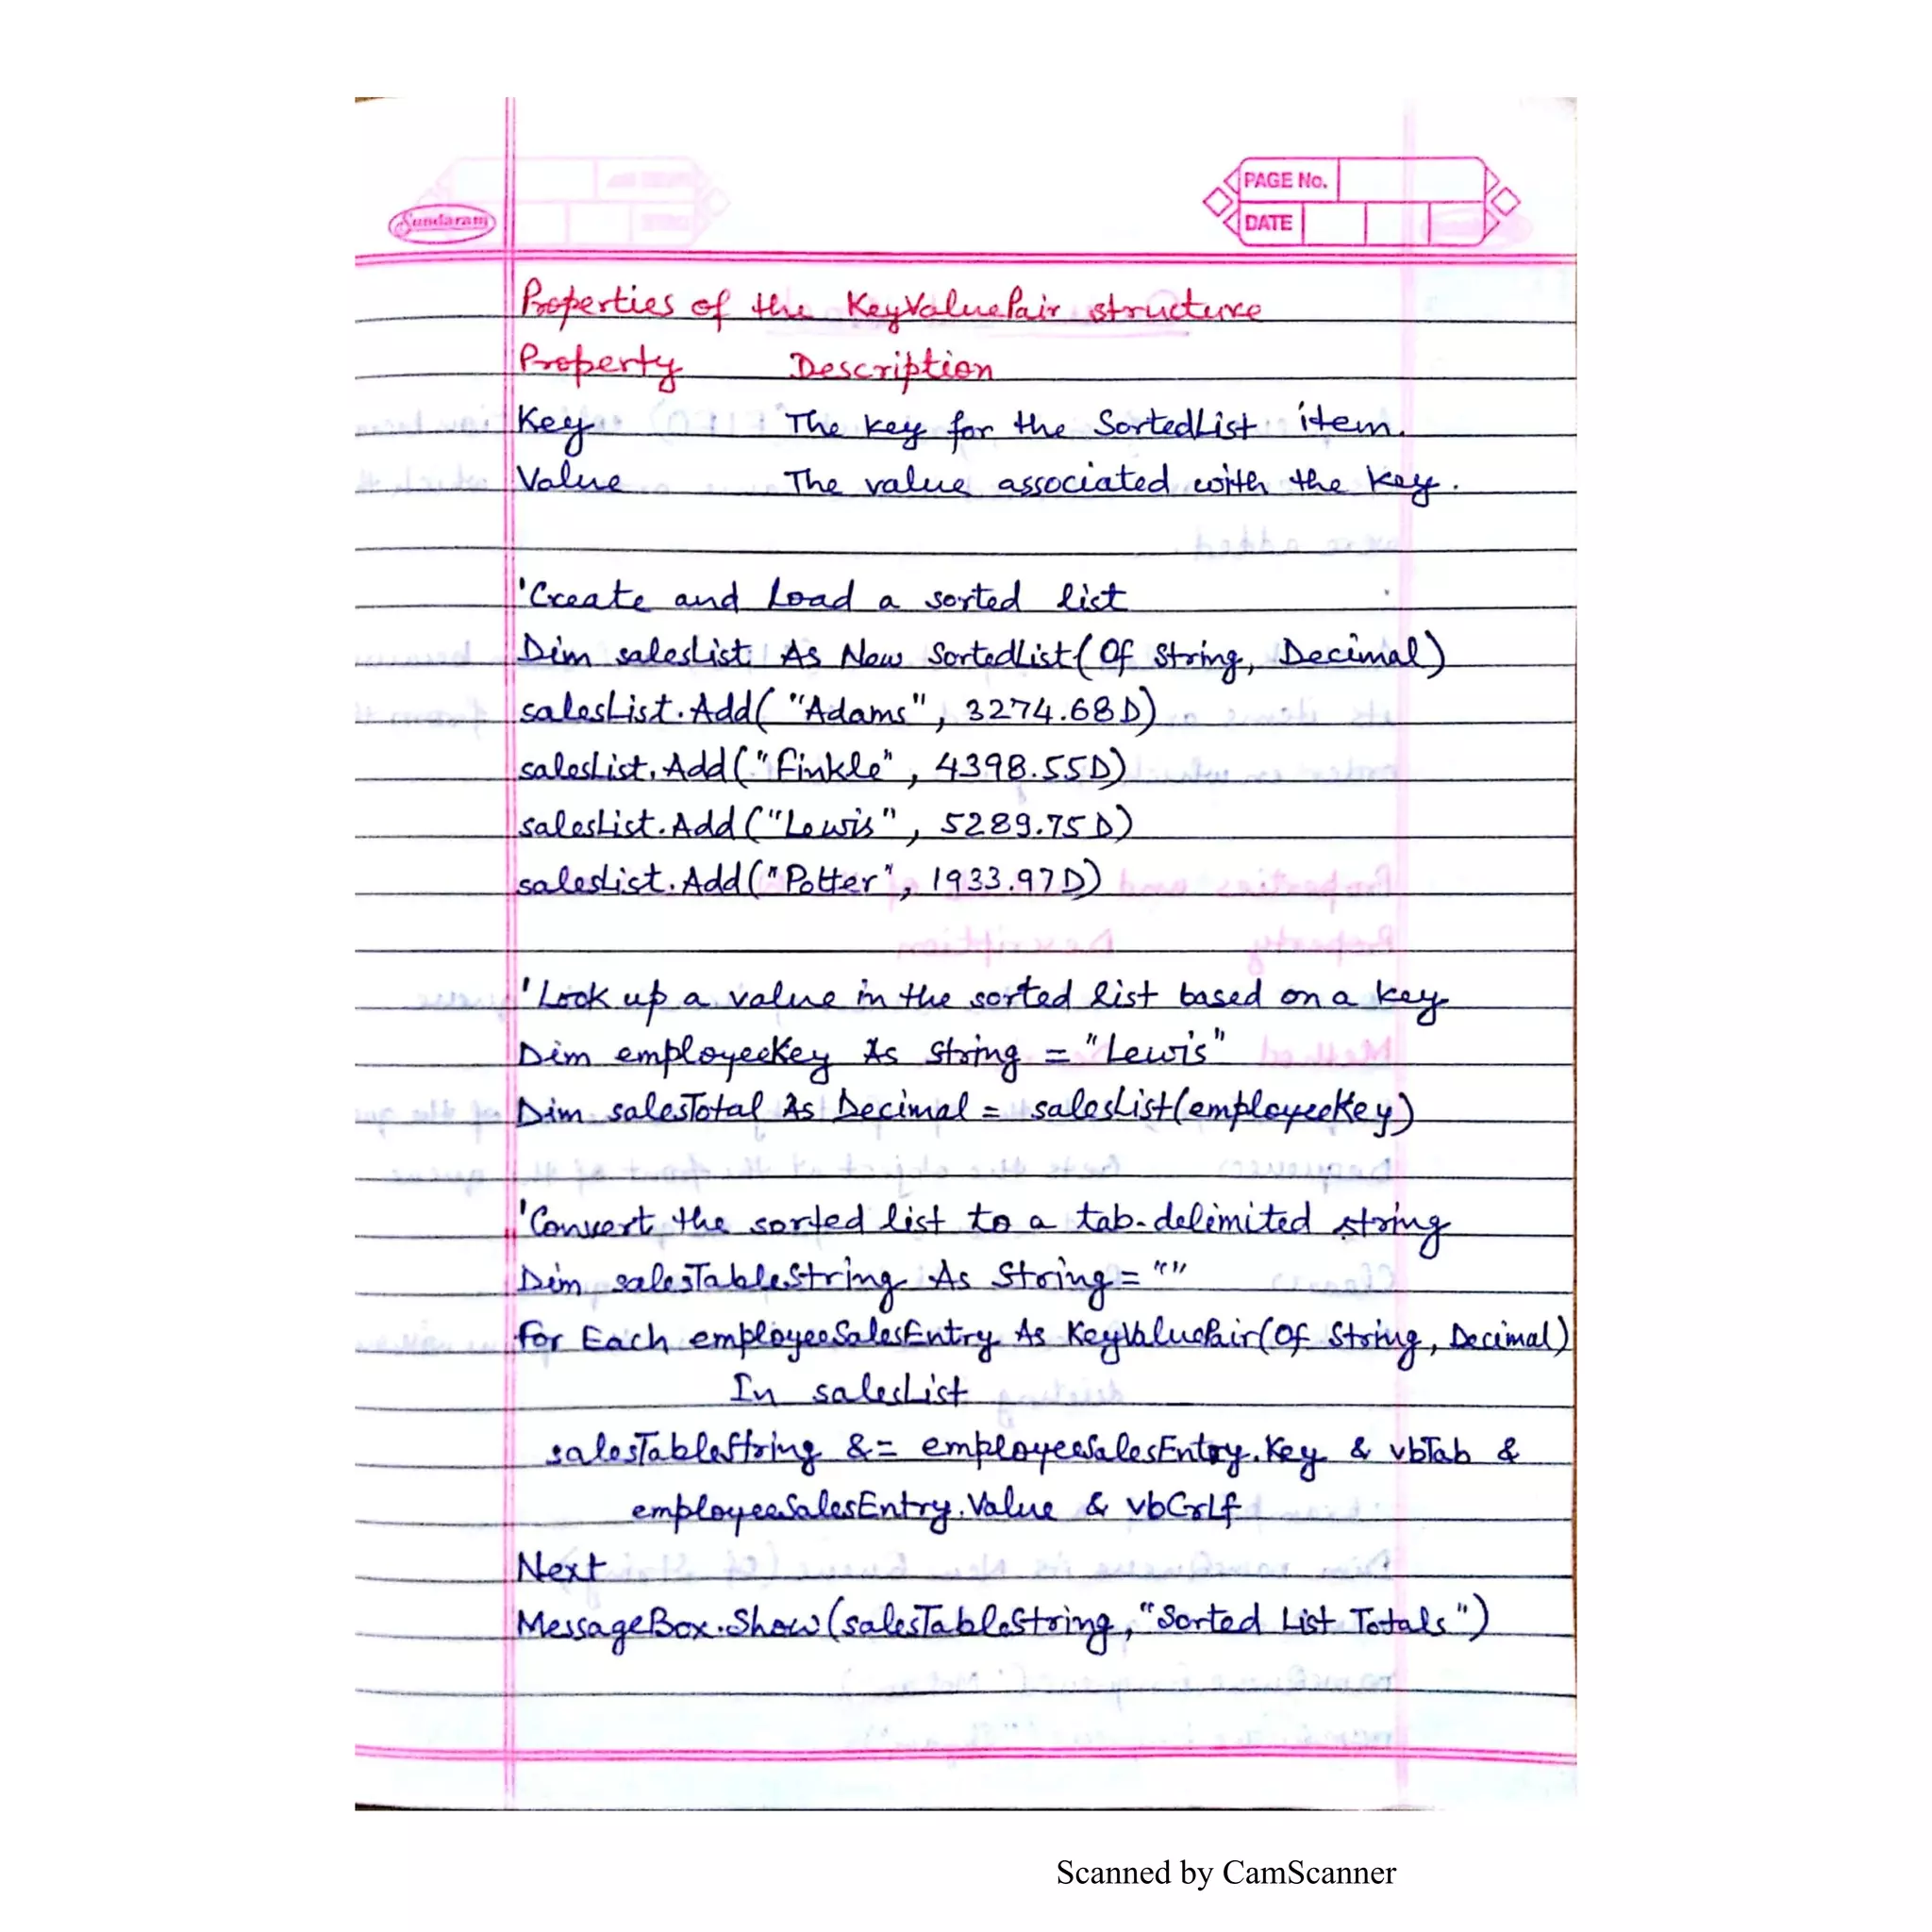 Sundaram
PAGE No.
DATE
Properties of the KeyValuePair structure
Property Description
Key The key for the SortedList item.
Value The value associated with the key.
'Create and load a sorted list
Dim salesList As New SortedList(Of String, Decimal)
salesList.Add( "Adams", 3274.68D)
salesList.Add("Finkle", 4398.55D)
salesList.Add("Lewis", 5289.75D)
salesList.Add("Potter", 1933.97D)
'Look up a value in the sorted list based on a key
Dim employeeKey As String = "Lewis"
Dim salesTotal As Decimal = salesList(employeeKey)
'Convert the sorted list to a tab-delimited string
Dim salesTableString As String = ""
For Each employeeSalesEntry As KeyValuePair(Of String, Decimal)
In salesList
salesTableString &= employeeSalesEntry.Key & vbTab &
employeeSalesEntry.Value & vbCrLf
Next
MessageBox.Show(salesTableString, "Sorted List Totals")
Scanned by CamScanner